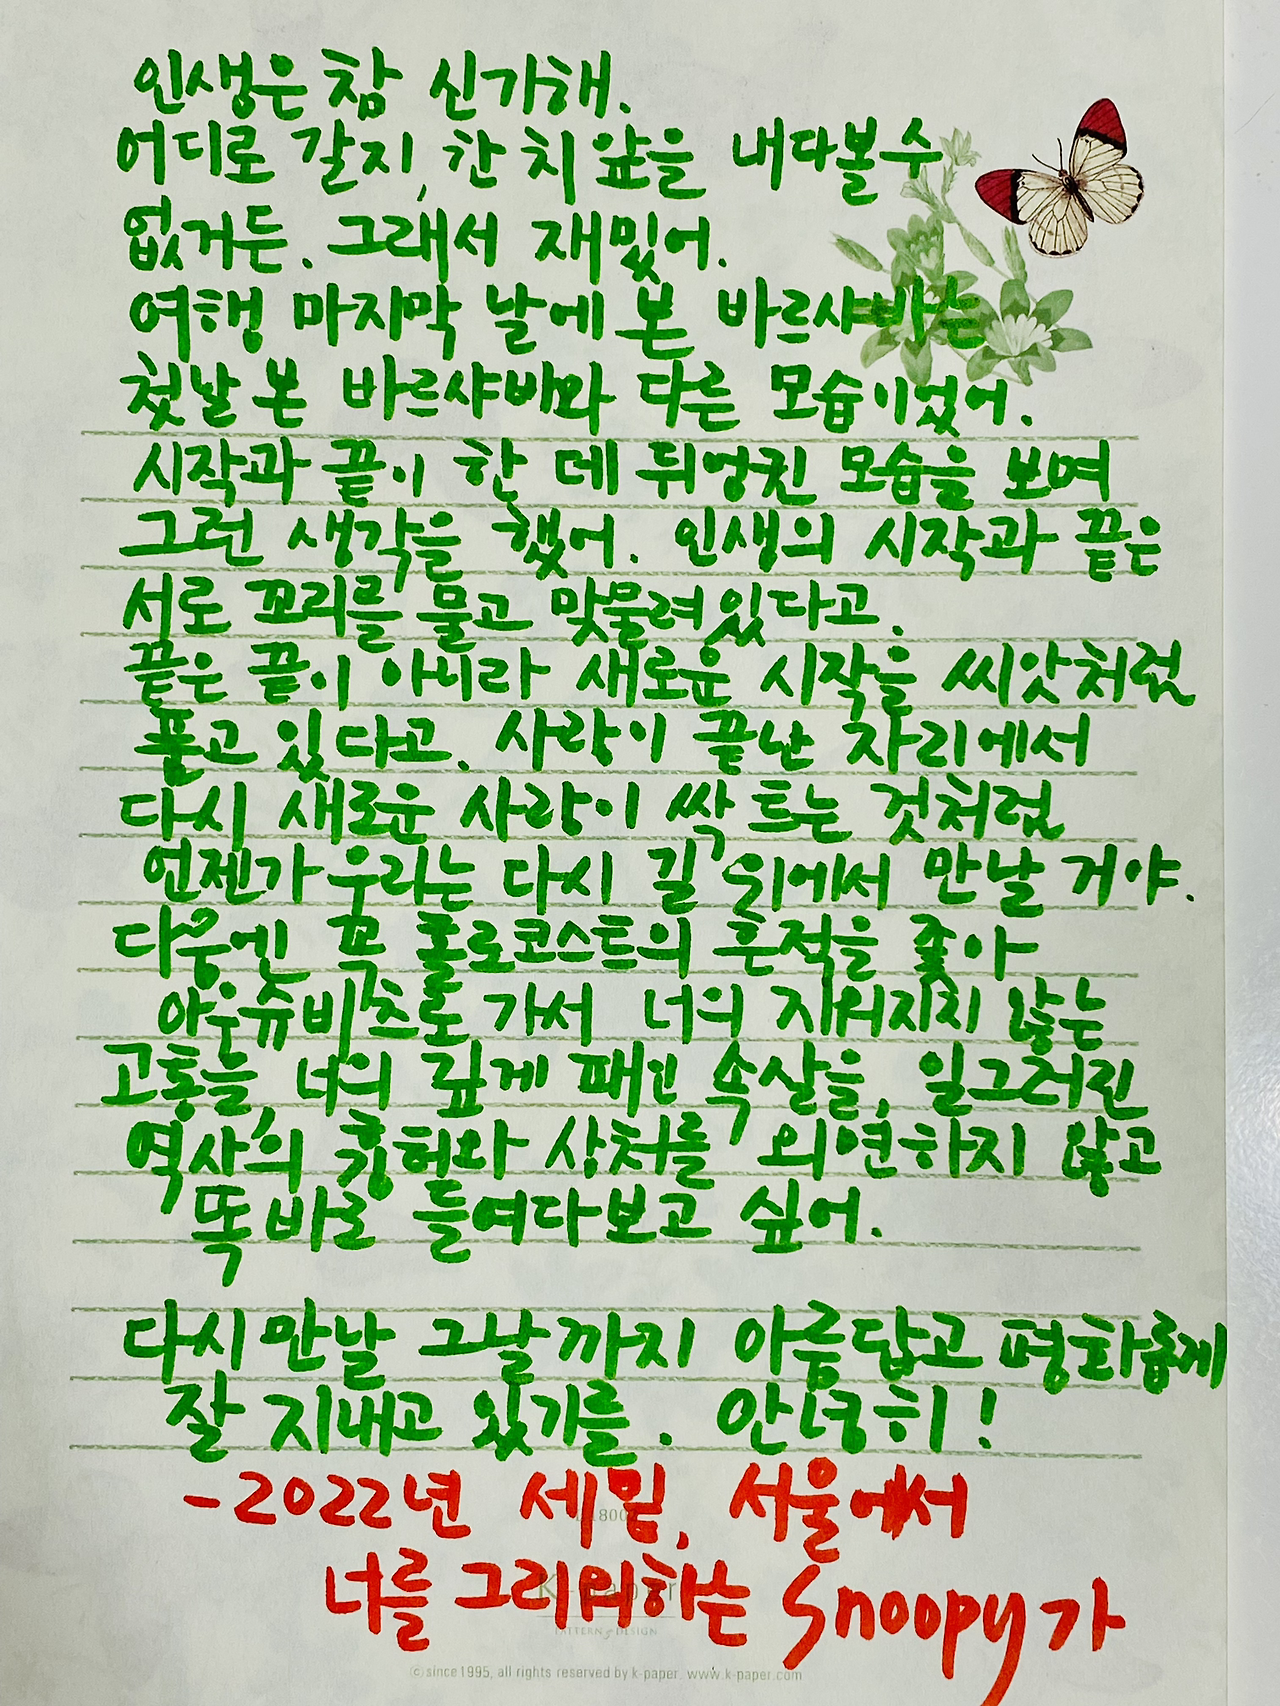 인생은 참 신기해.
어디로 갈지, 한 치 앞을 내다볼 수
없거든. 그래서 재밌어.
여행 마지막 날에 본 바르샤바는
첫날 본 바르샤바와 다른 모습이었어.
시작과 끝이 한 데 뒤엉킨 모습을 보며
그런 생각을 했어. 인생의 시작과 끝은
서로 꼬리를 물고 맞물려있다고.
끝은 끝이 아니라 새로운 시작을 씨앗처럼
품고 있다고. 사랑이 끝난 자리에서
다시 새로운 사랑이 싹 트는 것처럼
언젠가 우리는 다시 길 위에서 만날 거야.
다음엔 꼭 홀로코스트의 흔적을 좇아
아우슈비츠로 가서 너의 지워지지 않는
고통을, 너의 깊게 패인 속살을, 일그러진
역사의 흉허와 상처를 외면하지 않고
똑바로 들여다보고 싶어.
다시 만날 그날까지 아름답고 평화롭게
잘 지내고 있기를. 안녕히!
-2022년 세밑, 서울에서
너를 그리워하는 Snoopy가
K-paper
PATTERN & DESIGN
ⓒ since 1995, all rights reserved by k-paper. www.k-paper.com